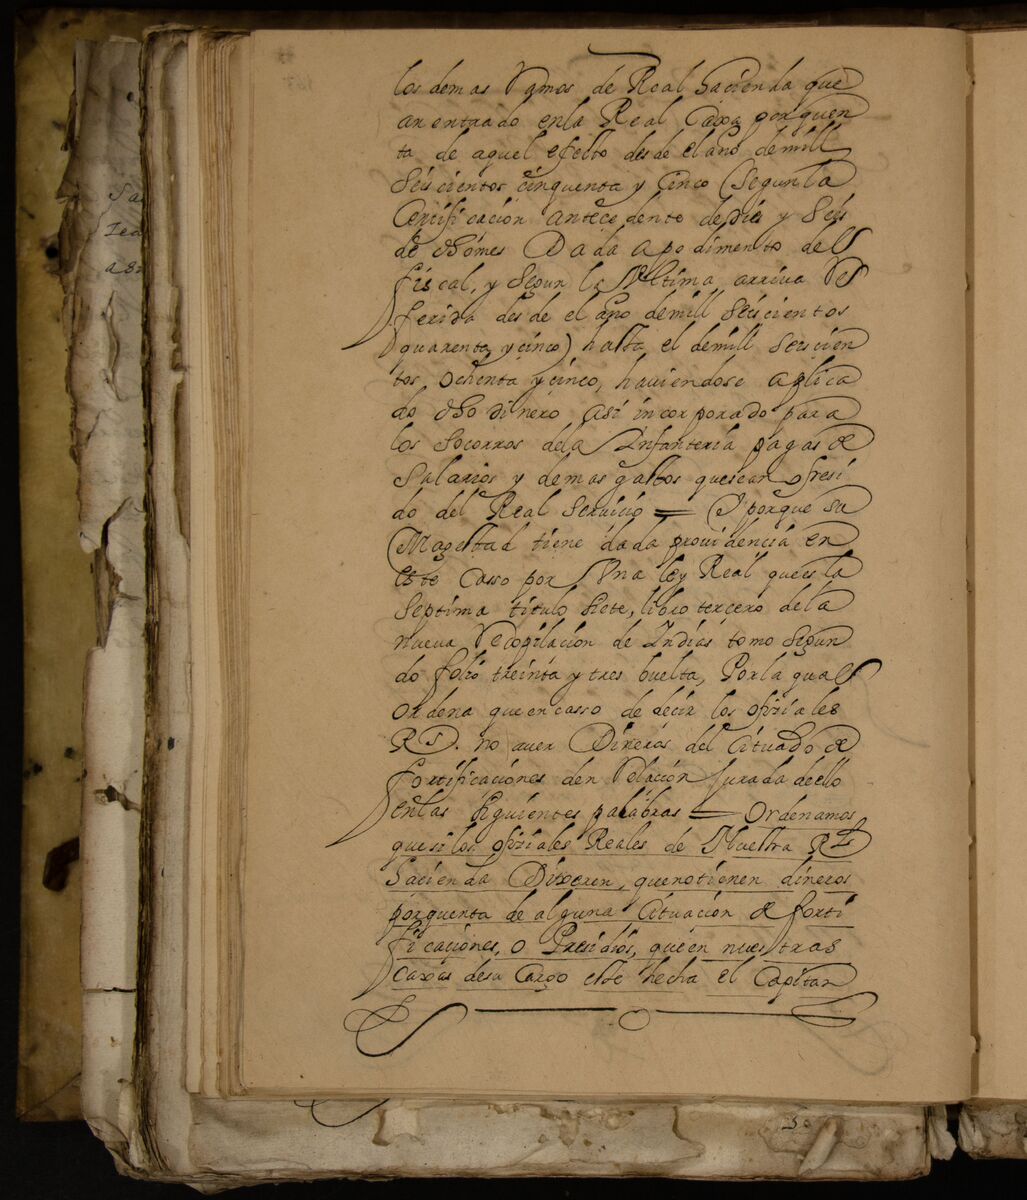 los demas Ramos de Real hacienda que
an entrado en la Real Caxa por quen
ta de aquel efecto desde el año de mill
seis cientos cinquenta y cinco (segun la
Certificacion antecedente de dies y seis
de dho mes Dada a pedimento del
fiscal, y segun la Vltima arriva Re
ferida desde el año de mill seis cientos
quarenta y cinco) hasta el de mill seis cien
tos ochenta y cinco, haviendose aplica
do dho dinero assi incorporado para
los socorros de la Infanteria pagas de
salarios y demas gastos que se an ofresi
do del Real servicio = Y porque su
Magestad tiene dada providencia en
este casso por Vna ley Real que es la
septima titulo siete, libro tercero de la
nueva Recopilacion de Indias tomo segun
do folio treinta y tres buelta, Por la qual
ordena que en casso de decir los ofiziales
Rs. no aver Dineros del situado de
fortificaciones den Relacion Jurada de ello
en las siguientes palabras = Ordenamos
que si los ofiziales Reales de Nuestra Rl
hacienda Dixeren, que no tienen dineros
por quenta de alguna situacion de forti
ficaciones, o Presidios, que en nuestras
caxas de su cargo este hecha el Capitan